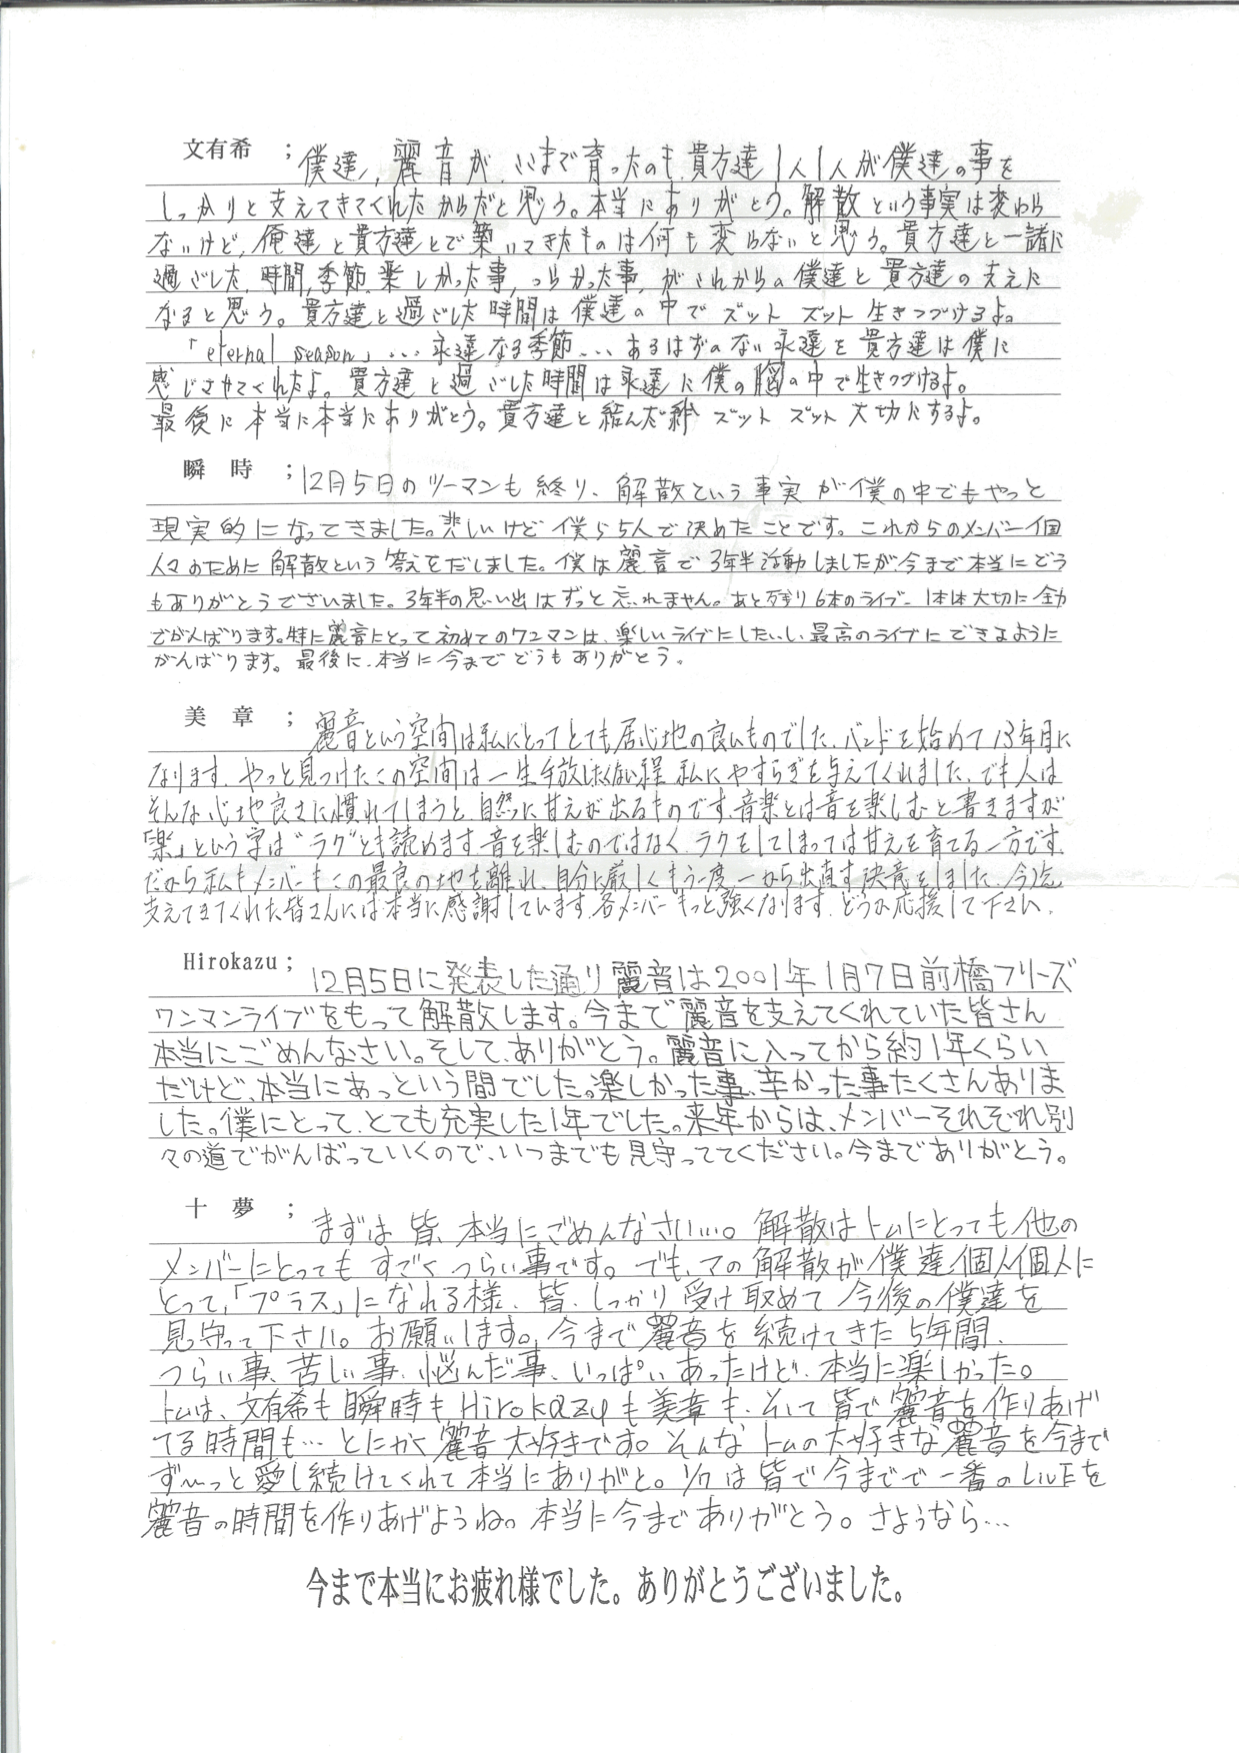 文有希 ; 僕達、麗音が、ここまで育ったのも、貴方達1人1人が僕達の事を
しっかりと支えてきてくれたからだと思う。本当にありがとう。解散という事実は変わら
ないけど、俺達と貴方達とで築いてきたものは何も変らないと思う。貴方達と一諸に
過ごした、時間、季節、楽しかった事、つらかった事、がこれからの僕達と貴方達の支えに
なると思う。貴方達と過ごした時間は僕達の中でズットズット生きつづけるよ。
「eternal season」…永遠なる季節…あるはずのない永遠を貴方達は僕に
感じさせてくれたよ。貴方達と過ごした時間は永遠に僕の胸の中で生きつづけるよ。
最後に本当に本当にありがとう。貴方達と結んだ絆ズットズット大切にするよ。
瞬時 ; 12月5日のツーマンも終り、解散という事実が僕の中でもやっと
現実的になってきました。悲しいけど僕ら5人で決めたことです。これからのメンバー個
人々のために解散という答えをだしました。僕は麗音で3年半活動しましたが今まで本当にどう
もありがとうございました。3年半の思い出はずっと忘れません。あと残り6本のライブ、1本1本大切に全力
でがんばります。特に麗音にとって初めてのワンマンは、楽しいライブにしたいし、最高のライブにできるように
がんばります。最後に、本当に今までどうもありがとう。
美章 ; 麗音という空間は私にとってとても居心地の良いものでした、バンドを始めて13年目に
なります、やっと見つけたこの空間は一生手放したくない程私にやすらぎを与えてくれました、でも人は
そんな心地良さに慣れてしまうと、自然に甘えが出るものです、音楽とは音を楽しむと書きますが
「楽」という字は"ラク"とも読めます、音を楽しむのではなく、ラクをしてしまっては甘えを育てる一方です、
だから私もメンバーもこの最良の地を離れ、自分に厳しくもう一度一から出直す決意をしました、今迄
支えてきてくれた皆さんには本当に感謝しています、各メンバーもっと強くなります、どうか応援して下さい、
Hirokazu ; 12月5日に発表した通り麗音は2001年1月7日前橋フリーズ
ワンマンライブをもって解散します。今まで麗音を支えてくれていた皆さん
本当にごめんなさい。そして、ありがとう。麗音に入ってから約1年くらい
だけど、本当にあっという間でした。楽しかった事、辛かった事たくさんありま
した。僕にとって、とても充実した1年でした。来年からは、メンバーそれぞれ別
々の道でがんばっていくので、いつまでも見守っててください。今までありがとう。
十夢 ; まずは皆、本当にごめんなさい…。解散はトムにとっても他の
メンバーにとってもすごくつらい事です。でも、この解散が僕達個人個人に
とって、「プラス」になれる様、皆、しっかり受け取めて今後の僕達を
見守って下さい。お願いします。今まで麗音を続けてきた5年間、
つらい事、苦しい事、悩んだ事、いっぱいあったけど、本当に楽しかった。
トムは、文有希も瞬時もHirokazuも美章も、そして皆で麗音を作りあげ
てる時間も…とにかく麗音大好きです。そんなトムの大好きな麗音を今まで
ず〜っと愛し続けてくれて本当にありがと。1/7は皆で今までで一番のLIVEを
麗音の時間を作りあげようね。本当に今までありがとう。さようなら…
今まで本当にお疲れ様でした。ありがとうございました。